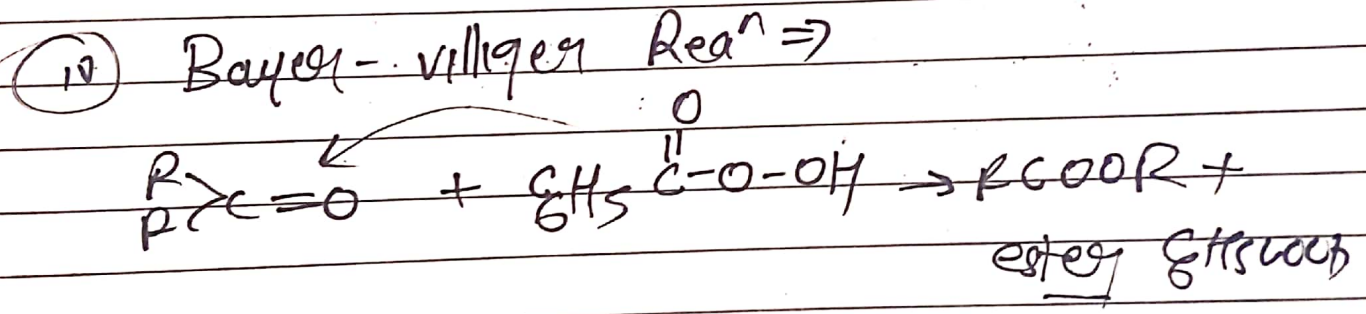 iv Bayer-villiger Reaⁿ ⇒
O
R
R >C=O + C6H5 C-O-OH → RCOOR +
ester C6H5COOH